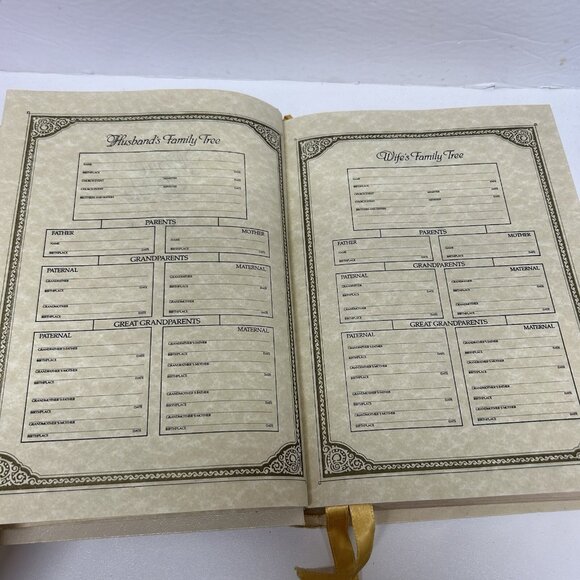 Husband's Family Tree
NAME
BIRTHPLACE DATE
CHURCH EVENT MINISTER
CHURCH EVENT MINISTER
BROTHERS AND SISTERS
PARENTS
FATHER MOTHER
NAME NAME
BIRTHPLACE DATE BIRTHPLACE DATE
GRANDPARENTS
PATERNAL MATERNAL
GRANDFATHER GRANDFATHER
BIRTHPLACE DATE BIRTHPLACE DATE
GRANDMOTHER GRANDMOTHER
BIRTHPLACE DATE BIRTHPLACE DATE
GREAT GRANDPARENTS
PATERNAL MATERNAL
GRANDFATHER'S FATHER GRANDFATHER'S FATHER
BIRTHPLACE DATE BIRTHPLACE DATE
GRANDFATHER'S MOTHER GRANDFATHER'S MOTHER
BIRTHPLACE DATE BIRTHPLACE DATE
GRANDMOTHER'S FATHER GRANDMOTHER'S FATHER
BIRTHPLACE DATE BIRTHPLACE DATE
GRANDMOTHER'S MOTHER GRANDMOTHER'S MOTHER
BIRTHPLACE DATE BIRTHPLACE DATE
Wife's Family Tree
NAME
BIRTHPLACE DATE
CHURCH EVENT MINISTER
CHURCH EVENT MINISTER
BROTHERS AND SISTERS
PARENTS
FATHER MOTHER
NAME NAME
BIRTHPLACE DATE BIRTHPLACE DATE
GRANDPARENTS
PATERNAL MATERNAL
GRANDFATHER GRANDFATHER
BIRTHPLACE DATE BIRTHPLACE DATE
GRANDMOTHER GRANDMOTHER
BIRTHPLACE DATE BIRTHPLACE DATE
GREAT GRANDPARENTS
PATERNAL MATERNAL
GRANDFATHER'S FATHER GRANDFATHER'S FATHER
BIRTHPLACE DATE BIRTHPLACE DATE
GRANDFATHER'S MOTHER GRANDFATHER'S MOTHER
BIRTHPLACE DATE BIRTHPLACE DATE
GRANDMOTHER'S FATHER GRANDMOTHER'S FATHER
BIRTHPLACE DATE BIRTHPLACE DATE
GRANDMOTHER'S MOTHER GRANDMOTHER'S MOTHER
BIRTHPLACE DATE BIRTHPLACE DATE